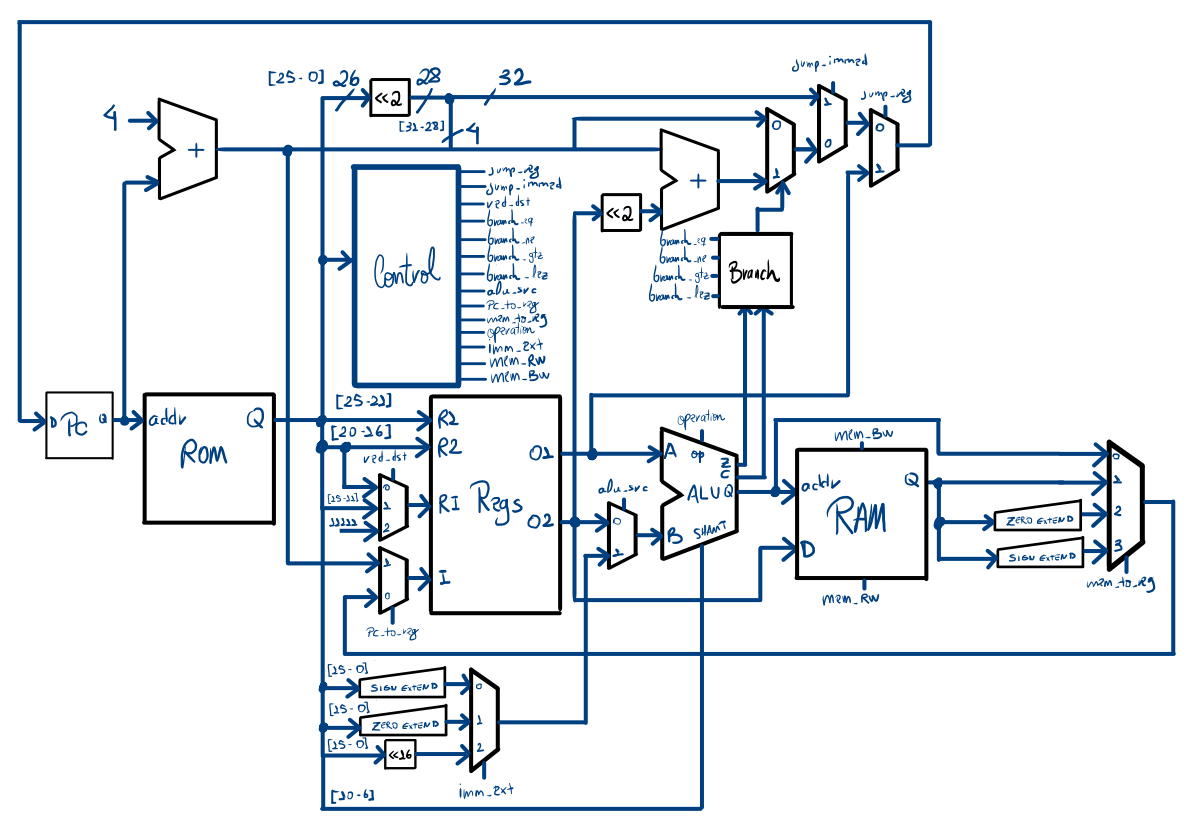 [25-0] 26 28 32
<<2
[31-28] 4
jump_immed
jump_reg
1
0
0
1
0
1
4
+
+
<<2
Control
jump_reg
jump_immed
red_dst
branch_eq
branch_ne
branch_gtz
branch_lez
alu_src
PC_to_reg
mem_to_reg
operation
imm_ext
mem_RW
mem_BW
branch_eq
branch_ne
branch_gtz
branch_lez
Branch
D PC Q
addr Q
ROM
[25-21]
[20-16]
red_dst
0
[15-11] 1
11111 2
1
0
PC_to_reg
R1
R2
RI
I
Regs
O1
O2
alu_src
0
1
operation
op
A
B
Z
C
ALU Q
SHAMT
mem_BW
addr Q
RAM
D
mem_RW
ZERO EXTEND
SIGN EXTEND
0
1
2
3
mem_to_reg
[15-0]
SIGN EXTEND 0
[15-0]
ZERO EXTEND 1
[15-0]
<<16 2
imm_ext
[10-6]